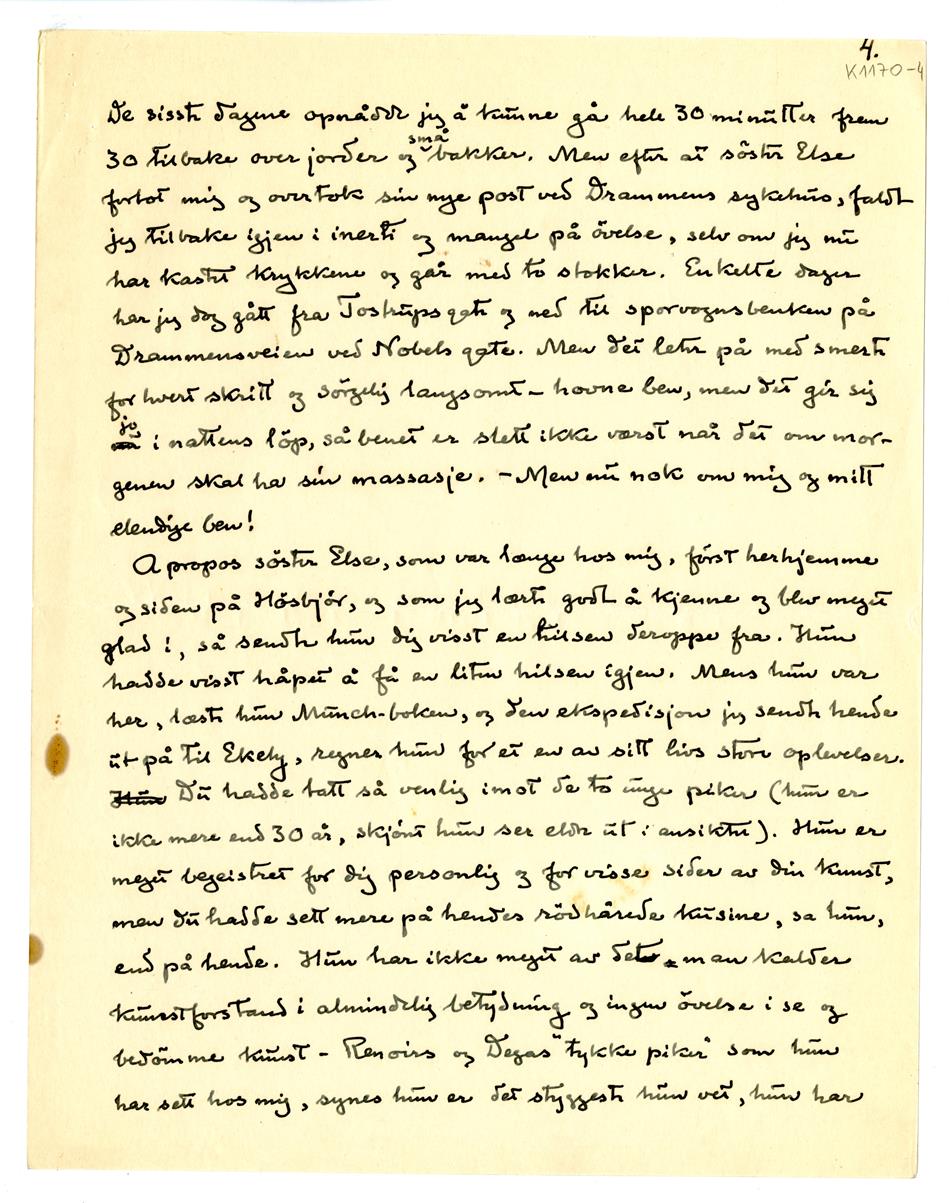 4.
K1170-4
De siste dagene opnådde jeg å kunne gå hele 30 minutter frem
30 tilbake over jorder og små bakker. Men efter at söster Else
forlot mig og overtok sin nye post ved Drammens sykehus, faldt
jeg tilbake igjen i inerti og mangel på övelse, selv om jeg nu
har kastet krykkene og går med to stokker. Enkelte dager
har jeg dog gått fra Tostrupsgate og ned til sporvognsbenken på
Drammensveien ved Nobels gate. Men det leter på med smerte
for hvert skritt og sörgelig langsomt – hovne ben, men det gir sig
jo i nattens löp, så benet er slett ikke værst når det om mor-
genen skal ha sin massasje. – Men nu nok om mig og mitt
elendige ben!
A propos söster Else, som var længe hos mig, först herhjemme
og siden på Hösbjör, og som jeg lærte godt å kjenne og blev meget
glad i, så sendte hun dig visst en hilsen deroppe fra. Hun
hadde visst håpet å få en liten hilsen igjen. Mens hun var
her, læste hun Munch-boken, og den ekspedisjon jeg sendte hende
ut på til Ekely, regner hun for et en av sitt livs store oplevelser.
Hun Du hadde tatt så venlig imot de to unge piker (hun er
ikke mere end 30 år, skjönt hun ser eldre ut i ansiktet). Hun er
meget begeistret for dig personlig og for visse sider av din kunst,
men du hadde sett mere på hendes rödhårede kusine, sa hun,
end på hende. Hun har ikke meget av det man kalder
kunstforstand i almindelig betydning og ingen övelse i se og
bedömme kunst – Renoirs og Degas "tykke piker" som hun
har sett hos mig, synes hun er det styggeste hun vet, hun har